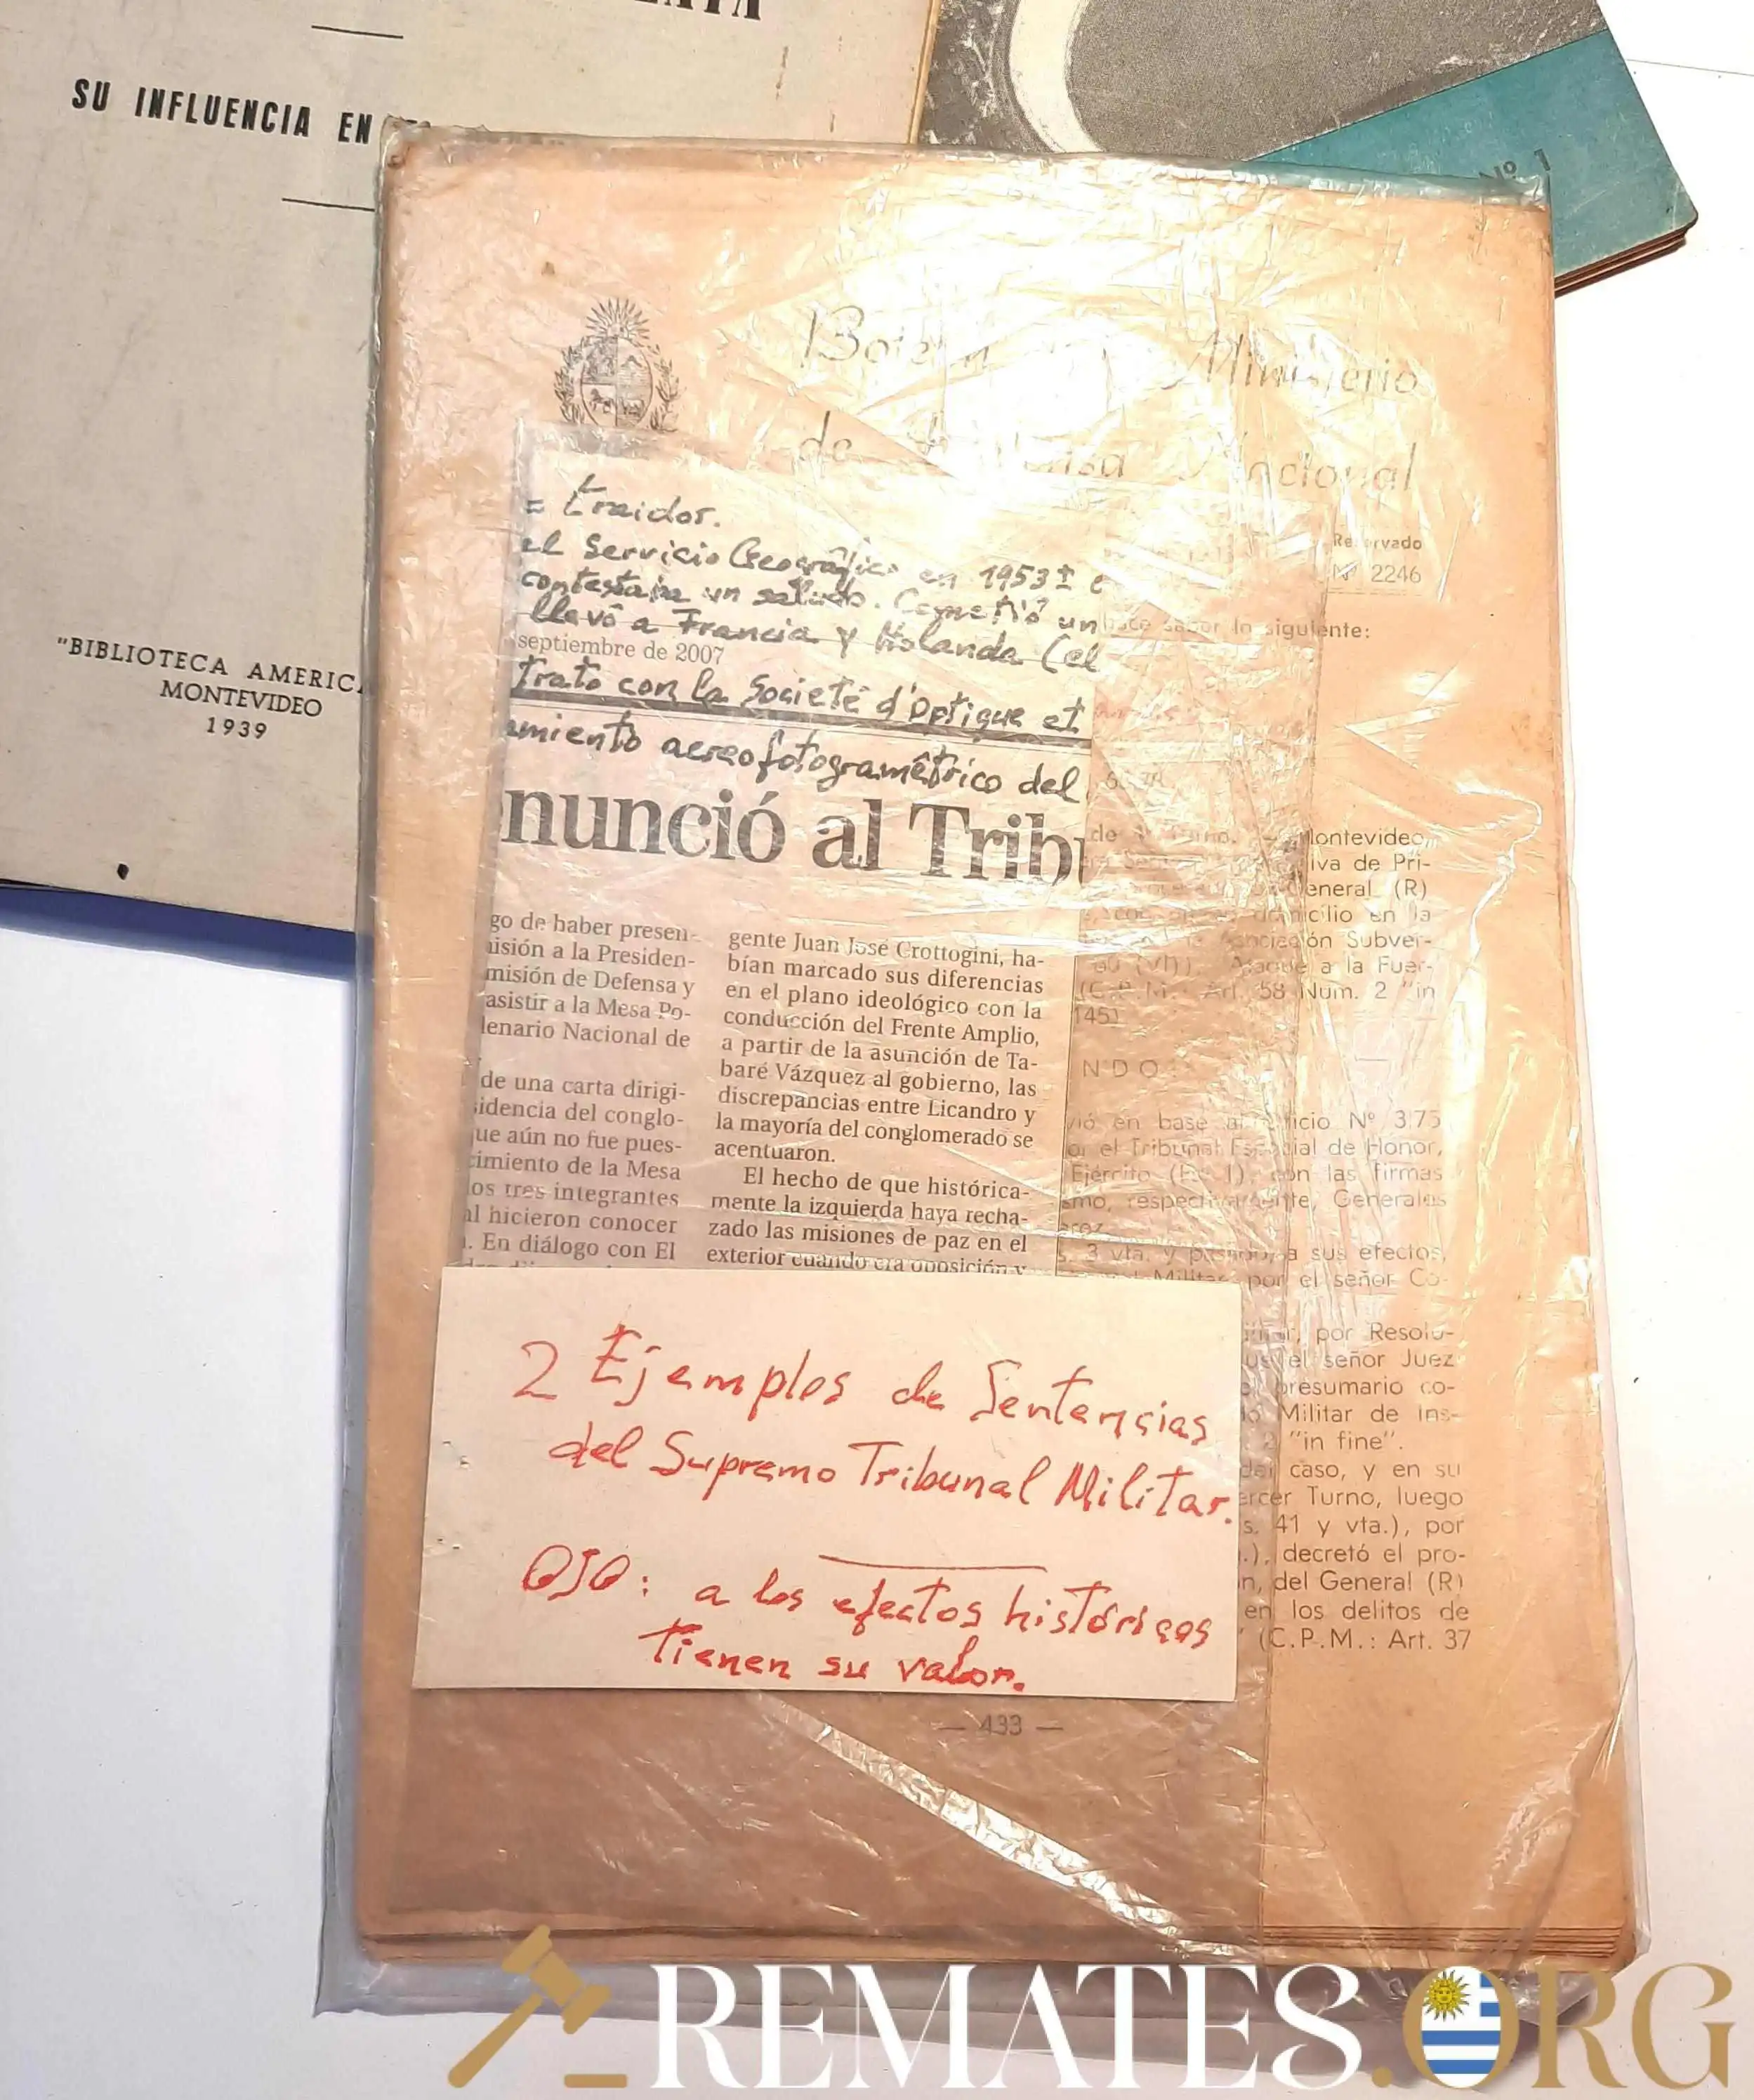 SU INFLUENCIA EN
"BIBLIOTECA AMERICA
MONTEVIDEO
1939
Nº 1
Boletín Ministerio
de Defensa Nacional
Reservado
Nº 2246
hace saber lo siguiente:
= traidor.
el Servicio Geográfico en 1953 ± e
contestara un saludo. Cometió un
llevó a Francia y Holanda (el
septiembre de 2007
trato con la Societé d'Optique et
amiento aereofotogramétrico del
nunció al Tribu
go de haber presen-
isión a la Presiden-
misión de Defensa y
asistir a la Mesa Po-
lenario Nacional de
de una carta dirigi-
sidencia del conglo-
que aún no fue pues-
cimiento de la Mesa
os tres integrantes
al hicieron conocer
. En diálogo con El
gente Juan José Crottogini, ha-
bían marcado sus diferencias
en el plano ideológico con la
conducción del Frente Amplio,
a partir de la asunción de Ta-
baré Vázquez al gobierno, las
discrepancias entre Licandro y
la mayoría del conglomerado se
acentuaron.
El hecho de que histórica-
mente la izquierda haya recha-
zado las misiones de paz en el
exterior cuando era oposición y
Montevideo,
iva de Pri-
General (R)
domicilio en la
Asociación Subver-
(VI)), "Ataque a la Fuer-
(C.P.M.: Art. 58 Num. 2 "in
145)
N D O :
vió en base al oficio Nº 375
or el Tribunal Especial de Honor,
Ejército (E. I), con las firmas
smo, respectivamente, Generales
s. 3 vta. y pasado, a sus efectos,
Militar por el señor Co-
por Resolu-
el señor Juez
presumario co-
Militar de Ins-
"in fine".
caso, y en su
ercer Turno, luego
s. 41 y vta.), por
.), decretó el pro-
n, del General (R)
en los delitos de
(C.P.M.: Art. 37
2 Ejemplos de Sentencias
del Supremo Tribunal Militar.
OJO: a los efectos históricos
tienen su valor.
— 433 —
REMATES.ORG